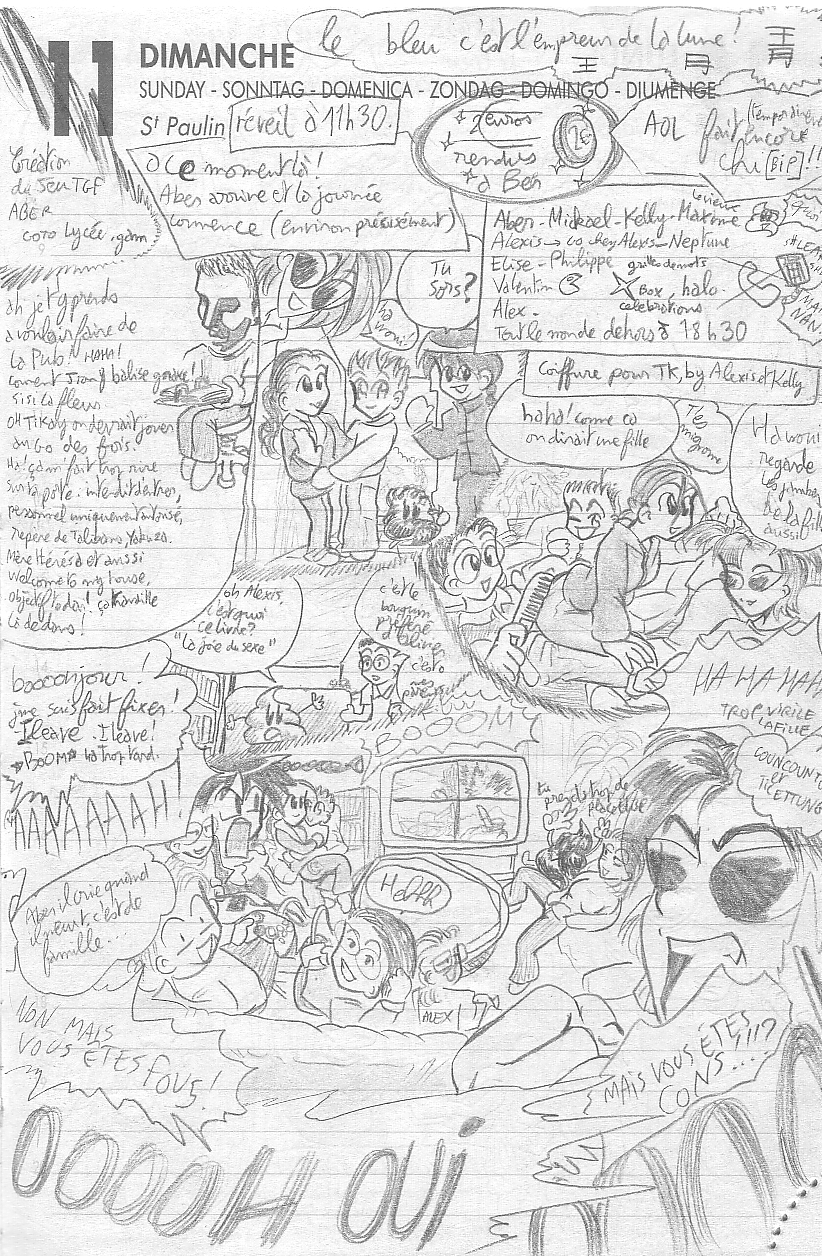 le bleu c'est l'empreur de la lune !
王 月 青
11
DIMANCHE
SUNDAY - SONNTAG - DOMENICA - ZONDAG - DOMINGO - DIUMENGE
St Paulin
réveil à 11h30.
2 euros
rendus
à Ben
2€
AOL
fait encore
chi [BIP] !!
Création
du jeu TGF
ABER
O Ce moment là !
Aber arrive et la journée
commence (environ précisément)
Aber - Mickael - Kelly - Maxime
Alexis → Go chez Alexis - Neptune
Elise - Philippe
grilles de mots
Valentin
X Box, halo
celebrations
Alex -
Tout le monde dehors à 18h30
Tu
sors ?
ah je t'y prends
à vouloir faire de
la Pub ! HAHA !
si si la fleur
OH Tikay on devrait jouer
au Go des fois.
Ha ! ça m'fait trop rire
sur ta porte : interdit d'entrer,
personnel uniquement autorisé,
repère de Talibans, Yakuza.
Mère Thérésa et aussi
Welcome to my house,
là dedans !
Coiffure pour TK, by Alexis et Kelly
haha ! comme ça
on dirait une fille
T'es
mignone
Ha woui
regarde
les jambes
de la fille
aussi
oh Alexis,
c'est quoi
ce livre ?
"La joie du sexe"
c'est le
bouquin
préféré
d'Olivier
HA HA HAHA
TROP VIRILE
LA FILLE
boooonjour !
j'me suis fait fixer !
I leave. I leave !
BOOM ha trop tard.
BOOOMY
AAAAAAAH !
tu
prends trop de
place
Aber il crie quand
il meurt c'est de
famille...
Hahhh
ALEX
NON MAIS
VOUS ETES FOUS !
MAIS VOUS ÊTES
CONS....!!!?
OOOOH OUI